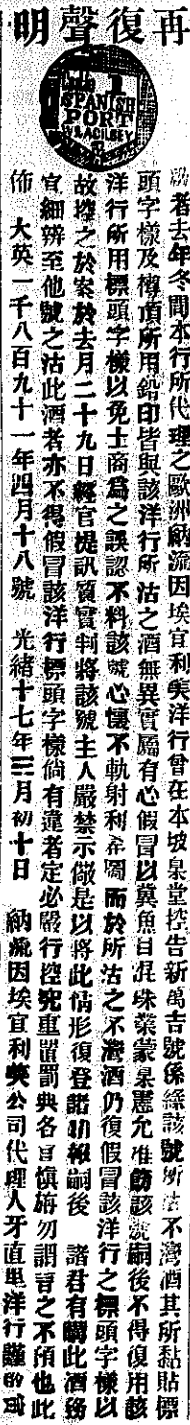 再復聲明
SPANISH
PORT
W&A GILBEY
啟者去年冬間本行所代理之歐洲納流因埃宜利英洋行曾在本坡臬堂控告新萬吉號係緣該號所沽不灣酒其所黏貼標
頭字樣及樽頂所用鉛印皆與該洋行所沽之酒無異實屬有心假冒以冀魚目混珠業蒙臬憲允准飭該號嗣後不得復用該
洋行所用標頭字樣以免士商為之誤認不料該號心懷不軌射利希圖而於所沽之不灣酒仍復假冒該洋行之標頭字樣以
故控之於案於去月二十九日經官提訊質實判將該號主人嚴禁示儆是以將此情形復登諸叻報嗣後 諸君有購此酒務
宜細辨至他號之沽此酒者亦不得假冒該洋行標頭字樣倘有違者定必嚴行控究重置罰典各宜慎旃勿謂言之不預也此
佈 大英一千八百九十一年四月十八號 光緒十七年三月初十日 納流因埃宜利英公司代理人牙直里洋行謹啟